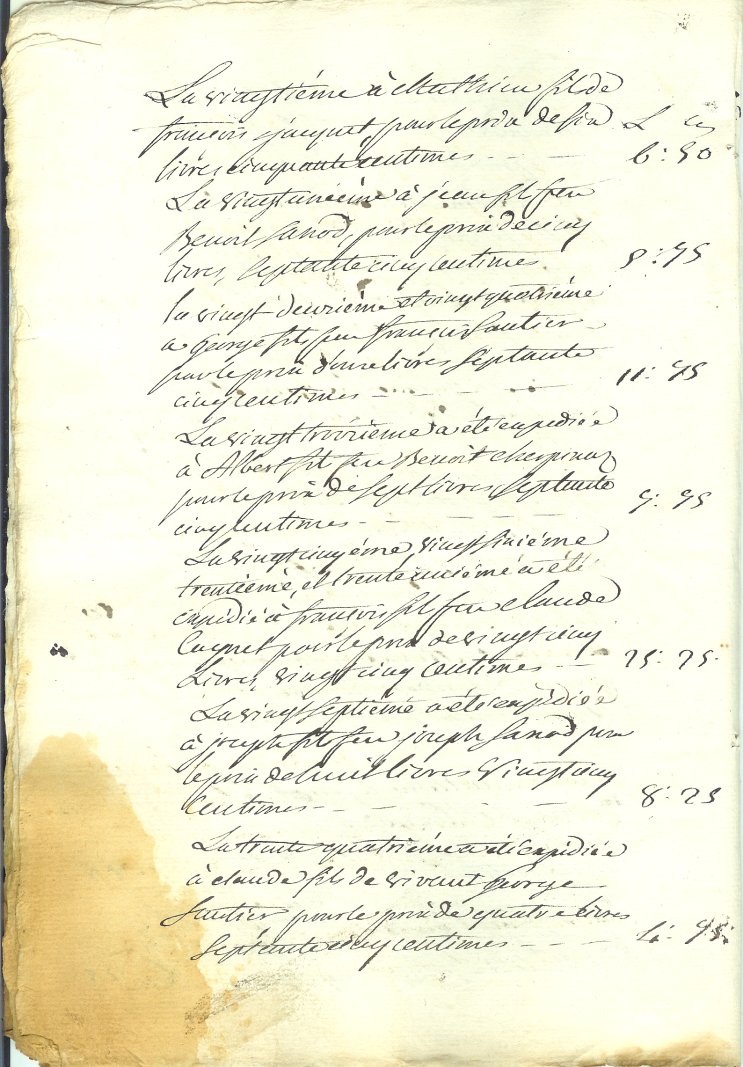 La vingtiéme à Mathieu fil de
francois jacquet, pour le prix de six L cs
livres cinquante centimes - - - 6: 50
La vingtunieme à jean fil feu
Benoit Sanod, pour le prix de cinq
livres, septante cinq centimes 5: 75
la vingt deuxiéme et vingt quatriéme
a George fils feu francois Sautier
pour le prix d'onze livres septante
cinq centimes - - - - 11: 75
La vingt troisieme a été expediée
à Albert fil feu Benoit
pour le prix de sept livres, septante
cinq centimes - - - - 7: 75
La vingt cinqéme, vingt sixiéme
trentiéme, et trente uniéme a été
expediée à francois fil feu claude
pour le prix de vingt cinq
Livres, vingt cinq centimes - - 25: 25
La vingt septiéme a été expédiée
à joseph fil feu joseph Sanod pour
le prix de huit livres vingt cinq
Centimes - - - - 8: 25
La trente quatriéme a été expédiée
à claude fils de vivant George
Sautier pour le prix de quatre livres
septante cinq centimes - - - 4: 75: